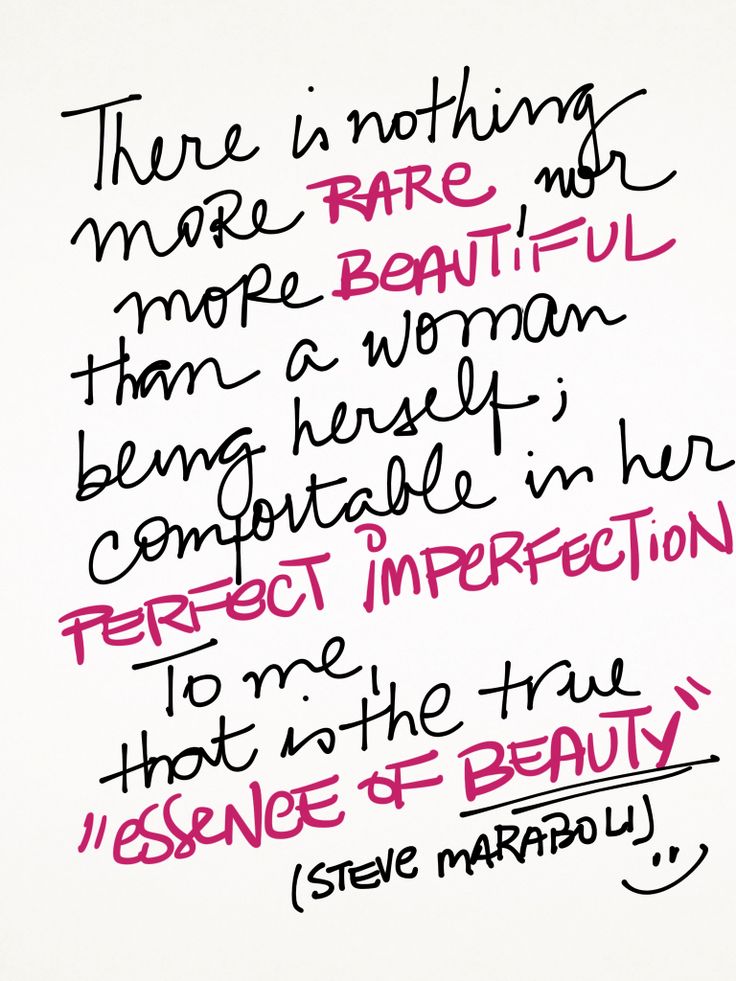 There is nothing
more RARe, nor
more BeAUTiFUL
than a woman
being herself;
comfortable in her
PERFecT iMPERFECTiON
To me,
that is the true
"eSSeNCE OF BEAUTY"
(STEVe MARABOLi)